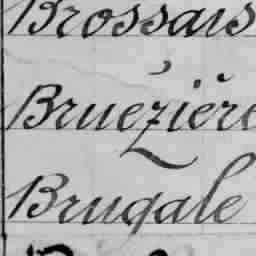 Brossais
Bruézière
Brugale